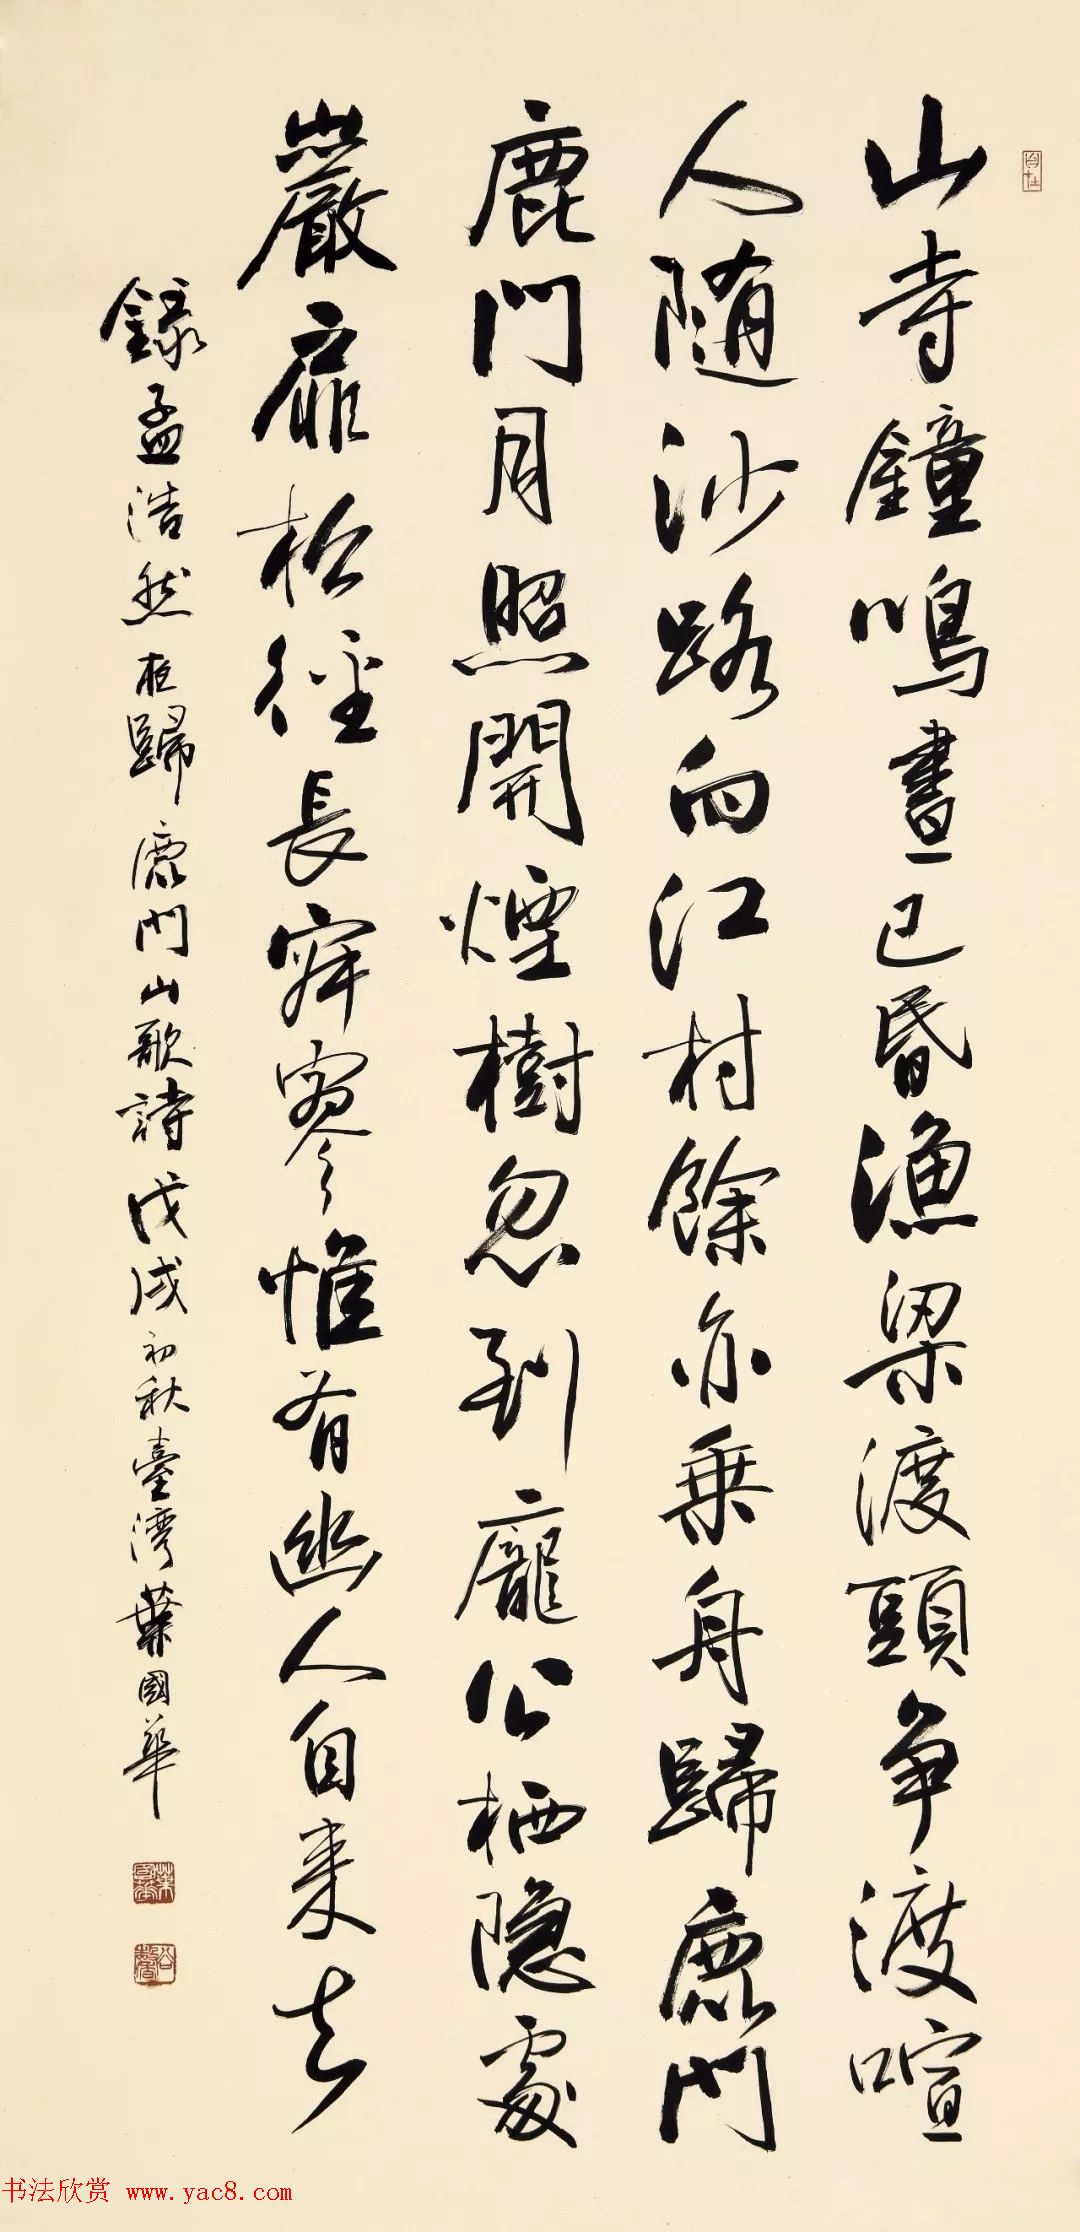 山寺鐘鳴晝已昏漁梁渡頭争渡喧
人随沙路向江村餘亦乗舟歸鹿門
鹿門月照開煙樹忽到龐公栖隐處
巖扉松徑長寂寥惟有幽人自来去
録孟浩然夜歸鹿門山歌詩戊戌初秋臺湾葉國華
书法欣赏 www.yac8.com